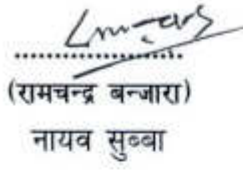 ....................
(रामचन्द्र बन्जारा)
नायव सुब्बा